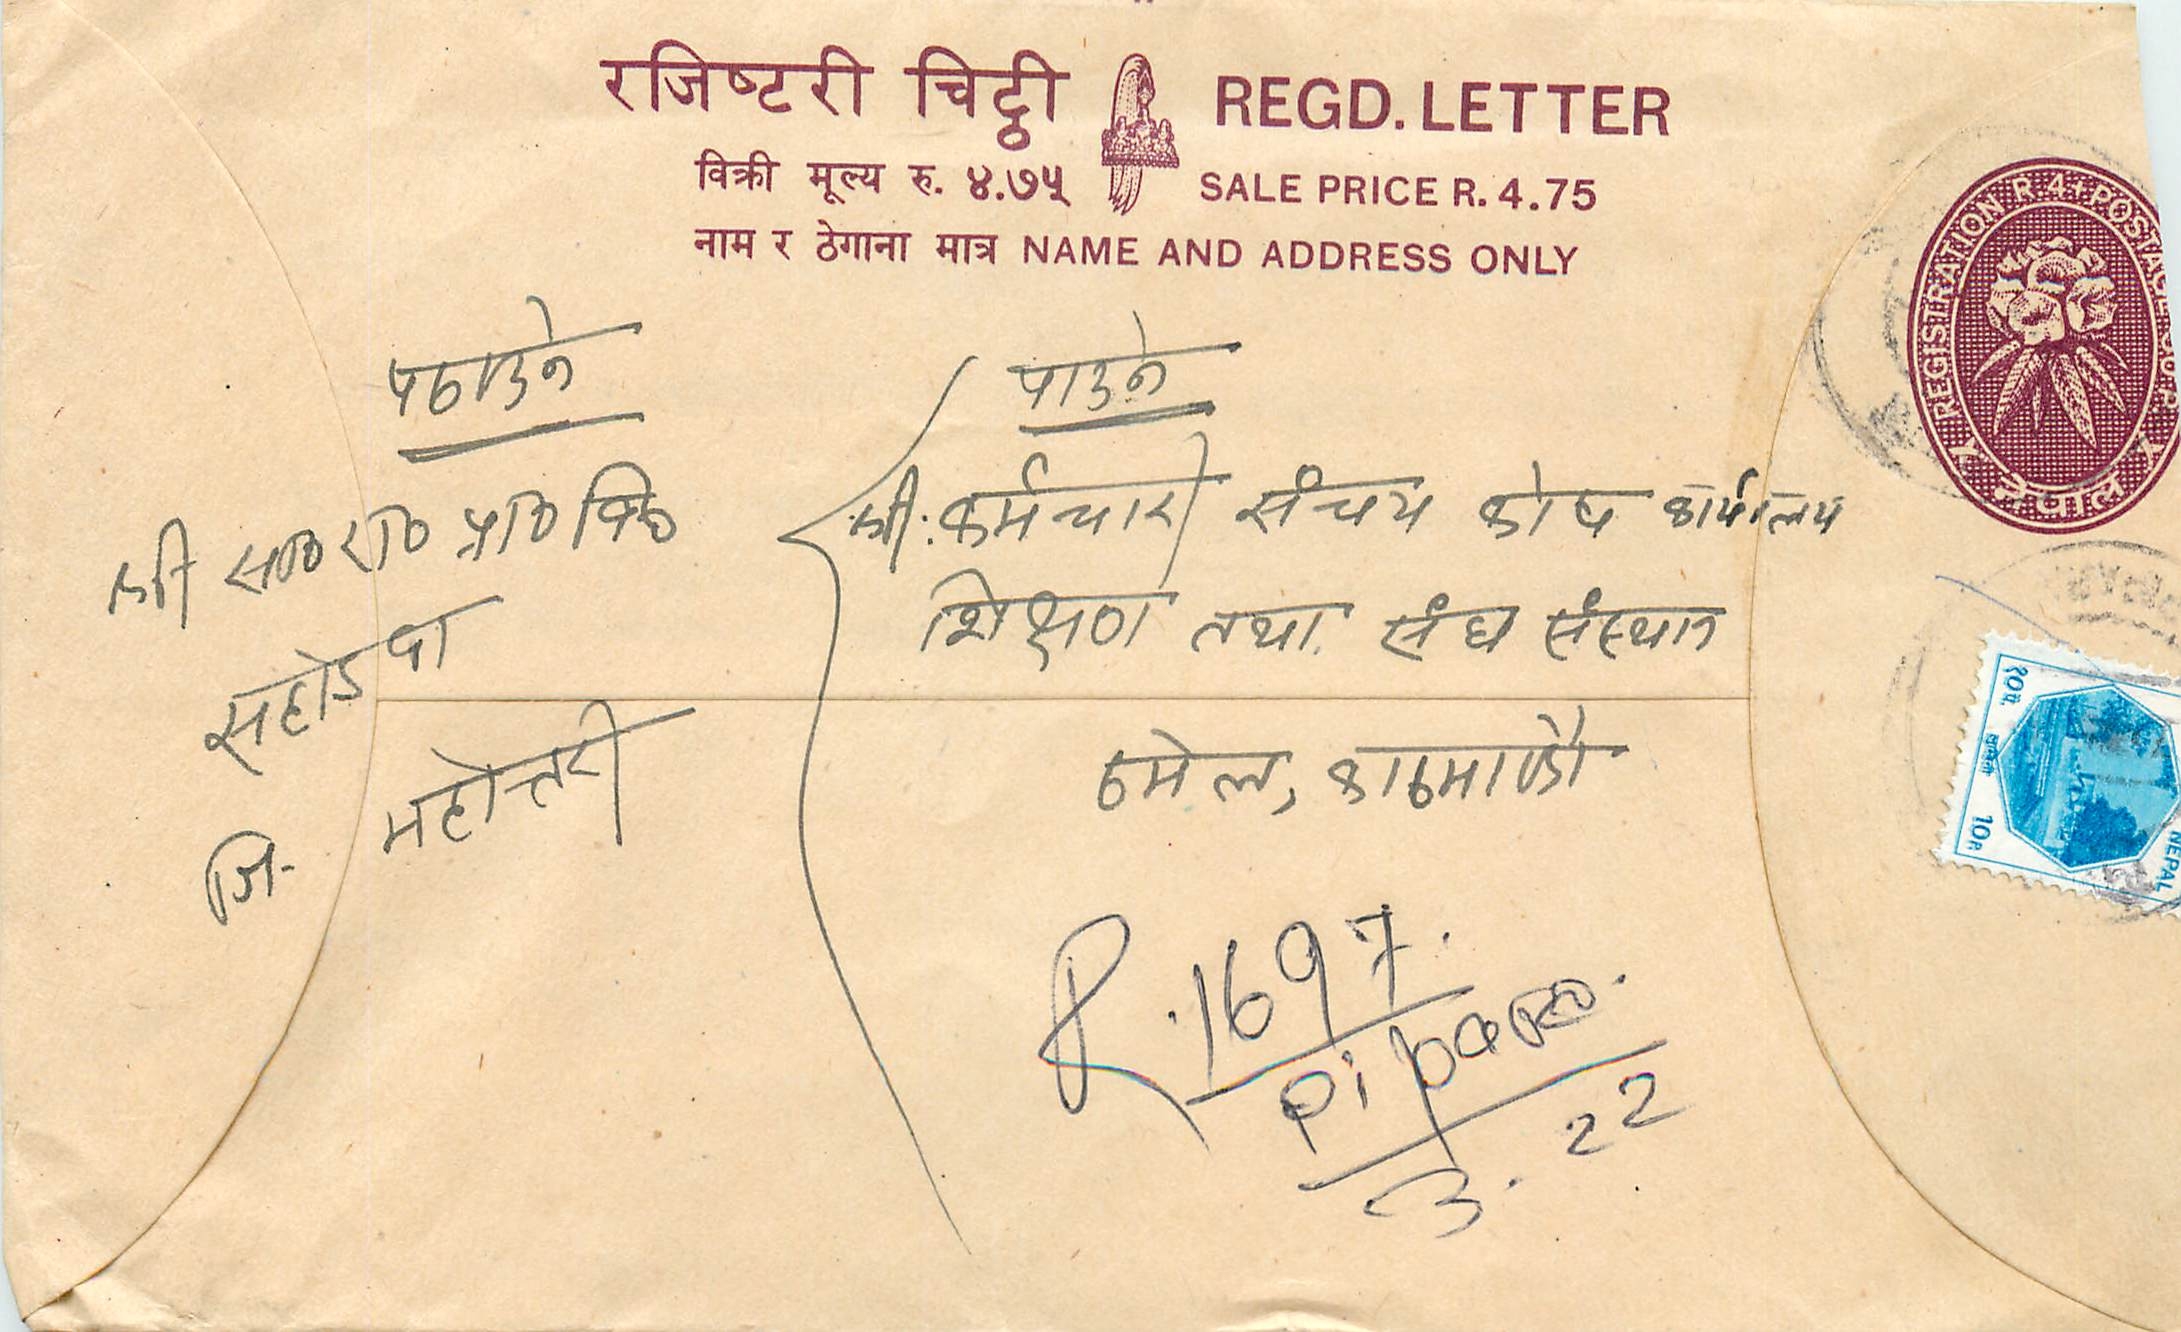 रजिष्टरी चिट्ठी REGD. LETTER
विक्री मूल्य रु. ४.७५ SALE PRICE R. 4.75
नाम र ठेगाना मात्र NAME AND ADDRESS ONLY
REGISTRATION R.4+POSTAGE
नेपाल
पठाउने
श्री रा० प्रा० वि०
सहोडवा
जि. महोत्तरी
पाउने
श्री. कर्मचारी संचय कोष कार्यालय
शिक्षण तथा संघ संस्थान
ठमेल, काठमाण्डौ
१०पै.
10P.
NEPAL
R. 1697.
Pipara.
3. 22